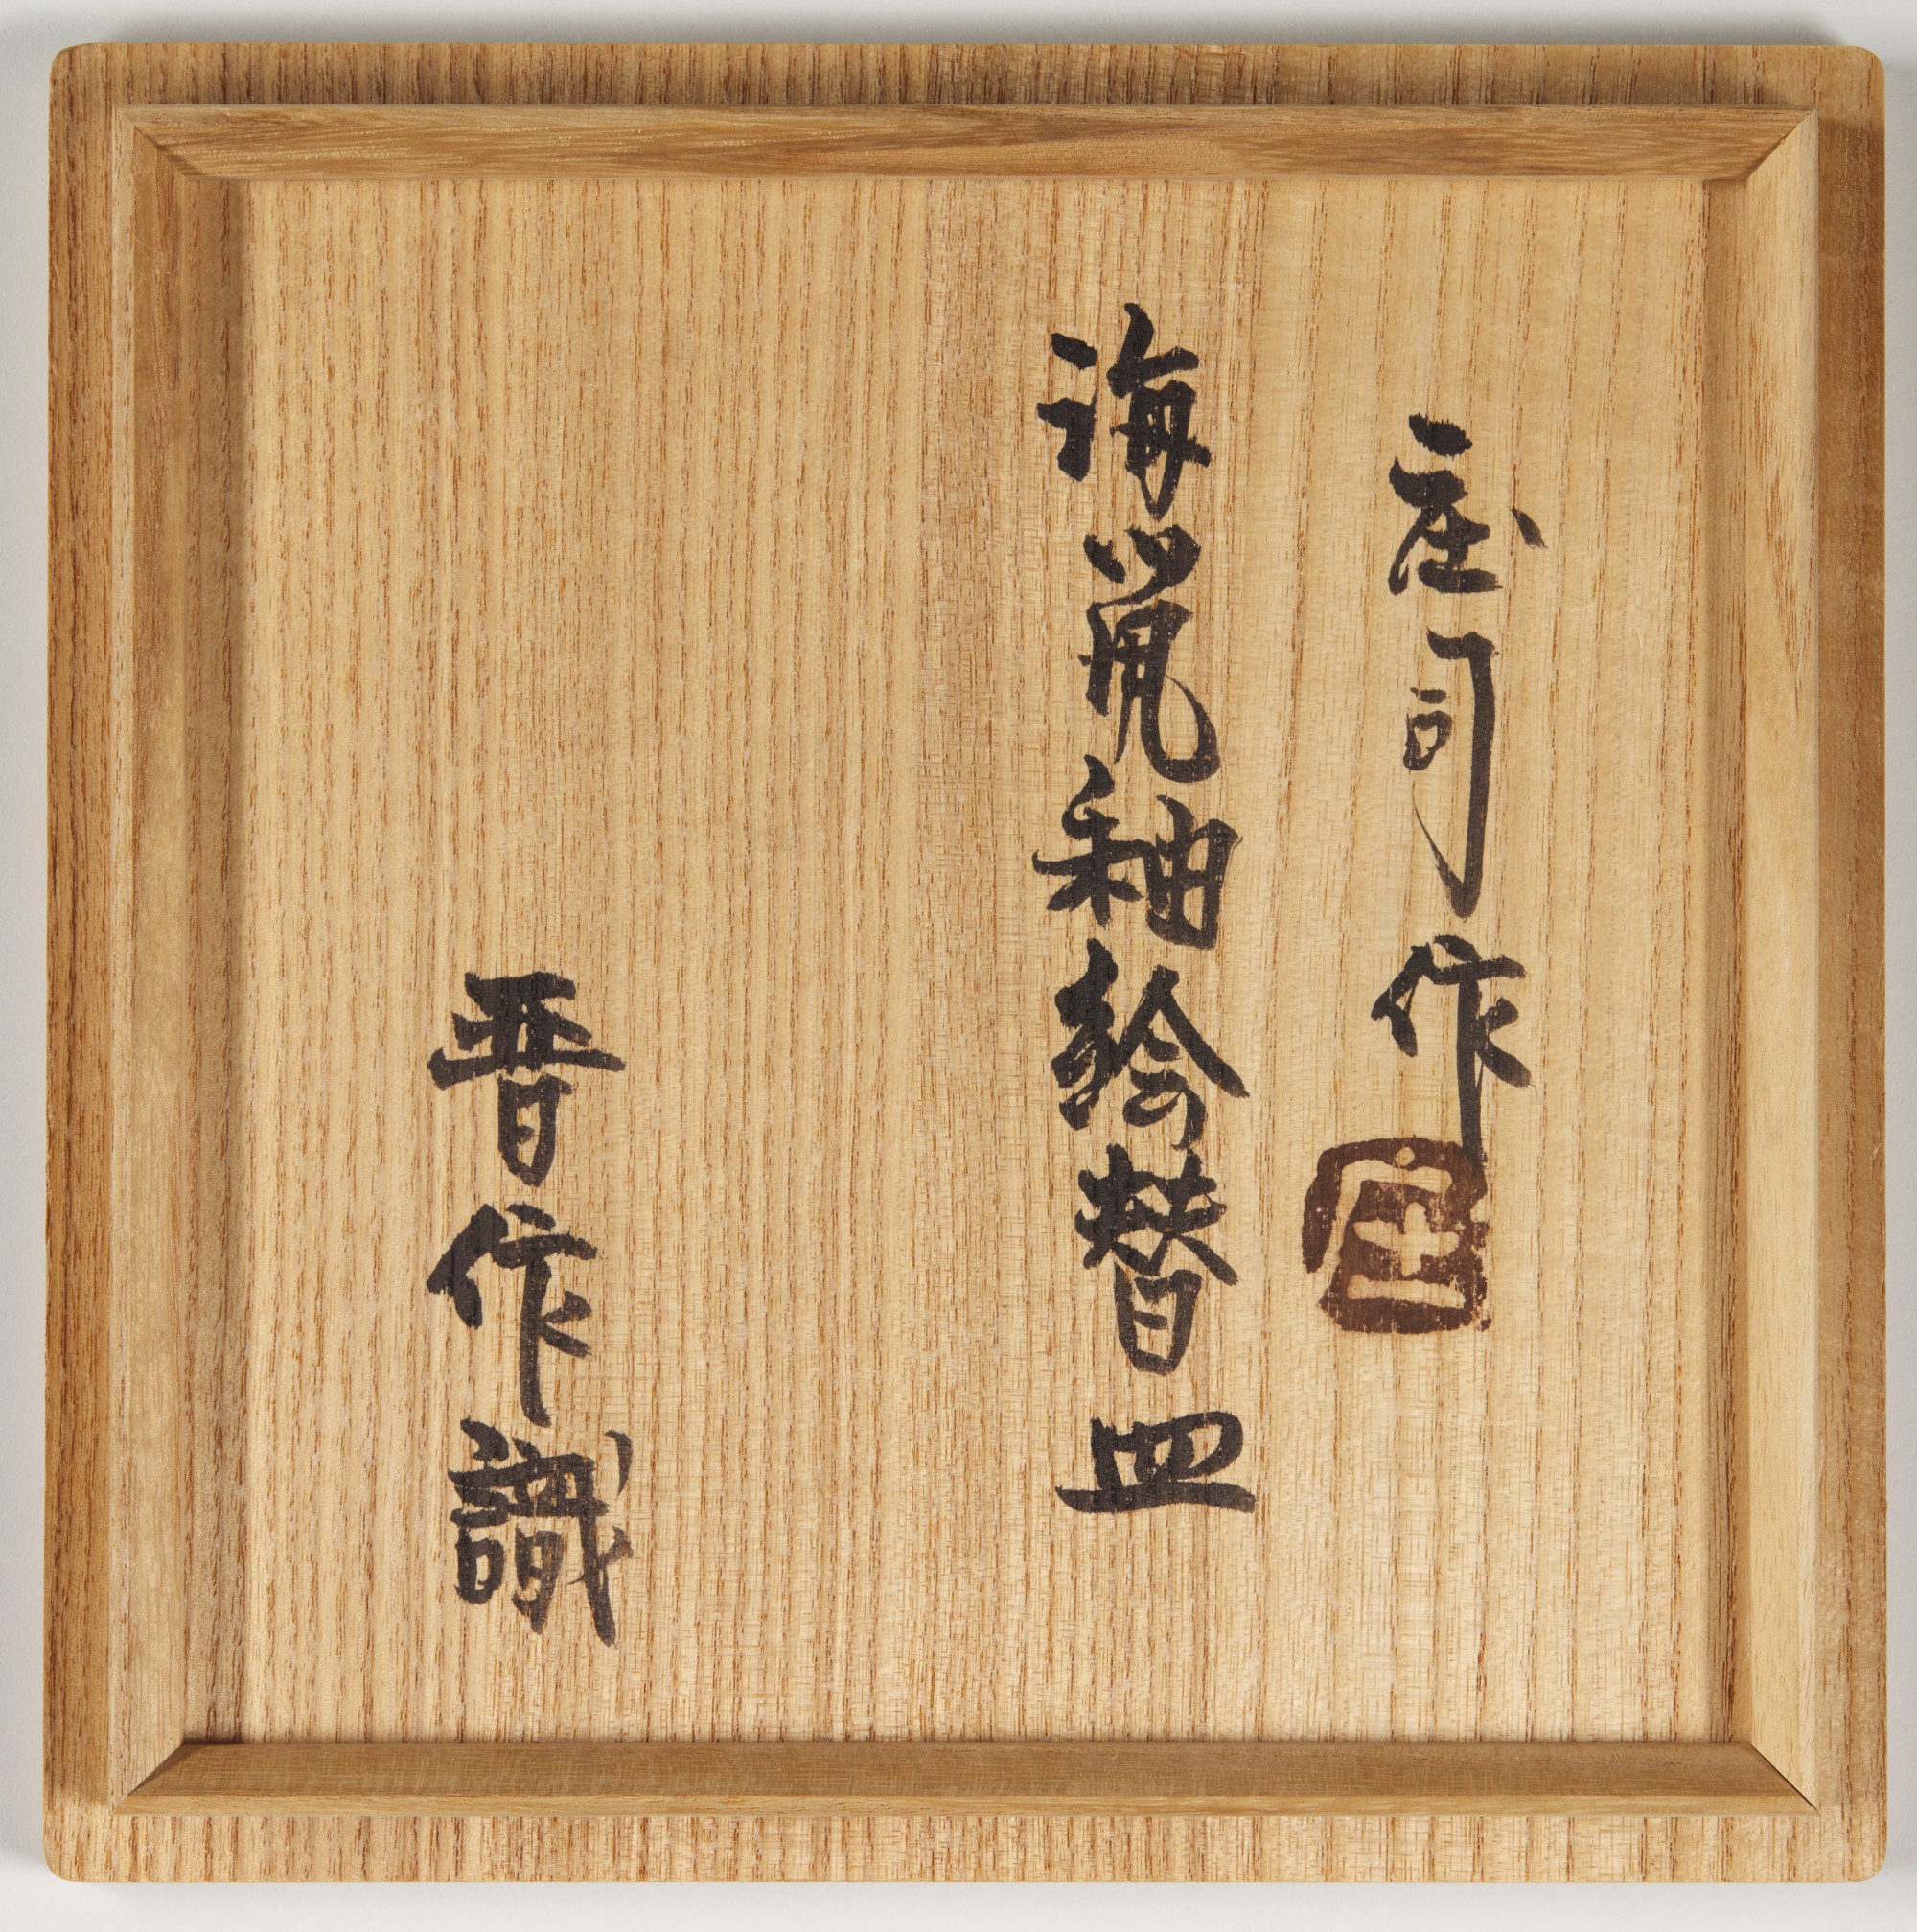 庄司作
庄
海鼠釉絵替皿
晋作識